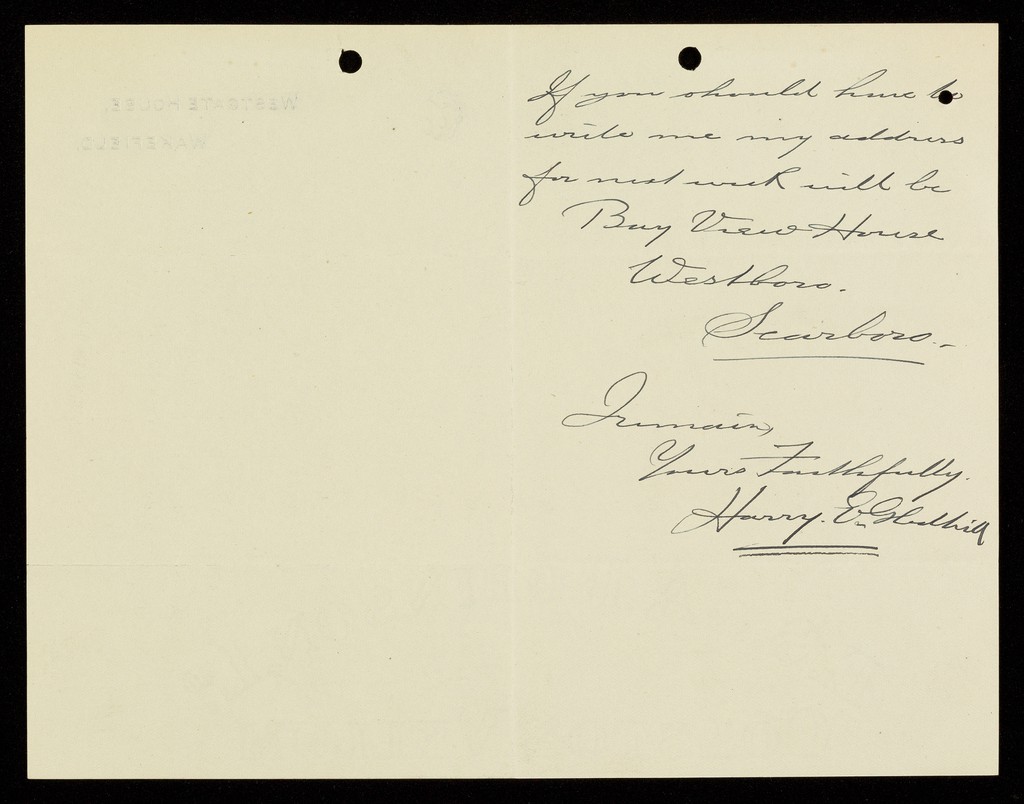 WESTGATE HOUSE,
WAKEFIELD.
If you should have to
write me my address
for next week will be
Bay View House
Westboro.
Scarboro.-
I remain,
Yours Faithfully.
Harry. E. Gledhill